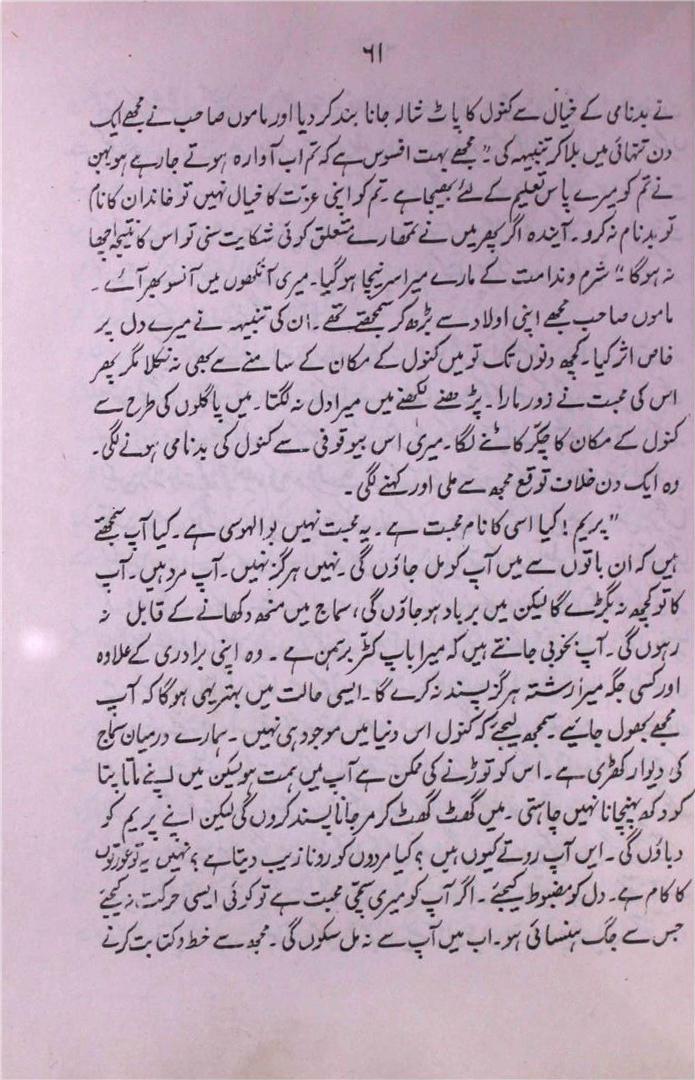 ۶۱
نے بدنامی کے خیال سے کنول کا پاٹ شالہ جانا بند کر دیا اور ماموں صاحب نے مجھے ایک
دن تنہائی میں بلا کر تنبیہہ کی “ مجھے بہت افسوس ہے کہ تم اب آوارہ ہوتے جا رہے ہو بہن
نے تم کو میرے پاس تعلیم کے لئے بھیجا ہے ۔ تم کو اپنی عزّت کا خیال نہیں تو خاندان کا نام
تو بدنام نہ کرو ۔ آیندہ اگر پھر میں نے تمھارے متعلق کوئی شکایت سنی تو اس کا نتیجہ اچھا
نہ ہوگا ۔“ شرم و ندامت کے مارے میرا سر نیچا ہو گیا ۔ میری آنکھوں میں آنسو بھر آئے ۔
ماموں صاحب مجھے اپنی اولاد سے بڑھ کر سمجھتے تھے ۔ ان کی تنبیہہ نے میرے دل پر
خاص اثر کیا ۔ کچھ دنوں تک تو میں کنول کے مکان کے سامنے سے بھی نہ نکلا مگر پھر
اس کی محبت نے زور مارا ۔ پڑھنے لکھنے میں میرا دل نہ لگتا ۔ میں پاگلوں کی طرح سے
کنول کے مکان کا چکّر کاٹنے لگا ۔ میری اس بیوقوفی سے کنول کی بدنامی ہونے لگی ۔
وہ ایک دن خلاف توقع مجھ سے ملی اور کہنے لگی ۔
“پریم ! کیا اسی کا نام محبت ہے ۔ یہ محبت نہیں بوالہوسی ہے ۔ کیا آپ سمجھتے
ہیں کہ ان باتوں سے میں آپ کو مل جاؤں گی ۔ نہیں ہرگز نہیں ۔ آپ مرد ہیں ۔ آپ
کا تو کچھ نہ بگڑے گا لیکن میں برباد ہو جاؤں گی ، سماج میں منھ دکھانے کے قابل نہ
رہوں گی ۔ آپ بخوبی جانتے ہیں کہ میرا باپ کٹّر برہمن ہے ۔ وہ اپنی برادری کے علاوہ
اور کسی جگہ میرا رشتہ ہرگز پسند نہ کرے گا ۔ ایسی حالت میں بہتر یہی ہوگا کہ آپ
مجھے بھول جائیے ۔ سمجھ لیجئے کہ کنول اس دنیا میں موجود ہی نہیں ۔ ہمارے درمیان سماج
کی دیوار کھڑی ہے ۔ اس کو توڑنے کی ممکن ہے آپ میں ہمت ہو لیکن میں اپنے ماتا پتا
کو دکھ پہنچانا نہیں چاہتی ۔ میں گھٹ گھٹ کر مر جانا پسند کروں گی لیکن اپنے پریم کو
دباؤں گی ۔ ایں آپ روتے کیوں ہیں ؟ کیا مردوں کو رونا زیب دیتا ہے ؟ نہیں یہ تو عورتوں
کا کام ہے ۔ دل کو مضبوط کیجئے ۔ اگر آپ کو میری سچّی محبت ہے تو کوئی ایسی حرکت نہ کیجئے
جس سے جگ ہنسائی ہو ۔ اب میں آپ سے نہ مل سکوں گی ۔ مجھ سے خط و کتابت کرنے